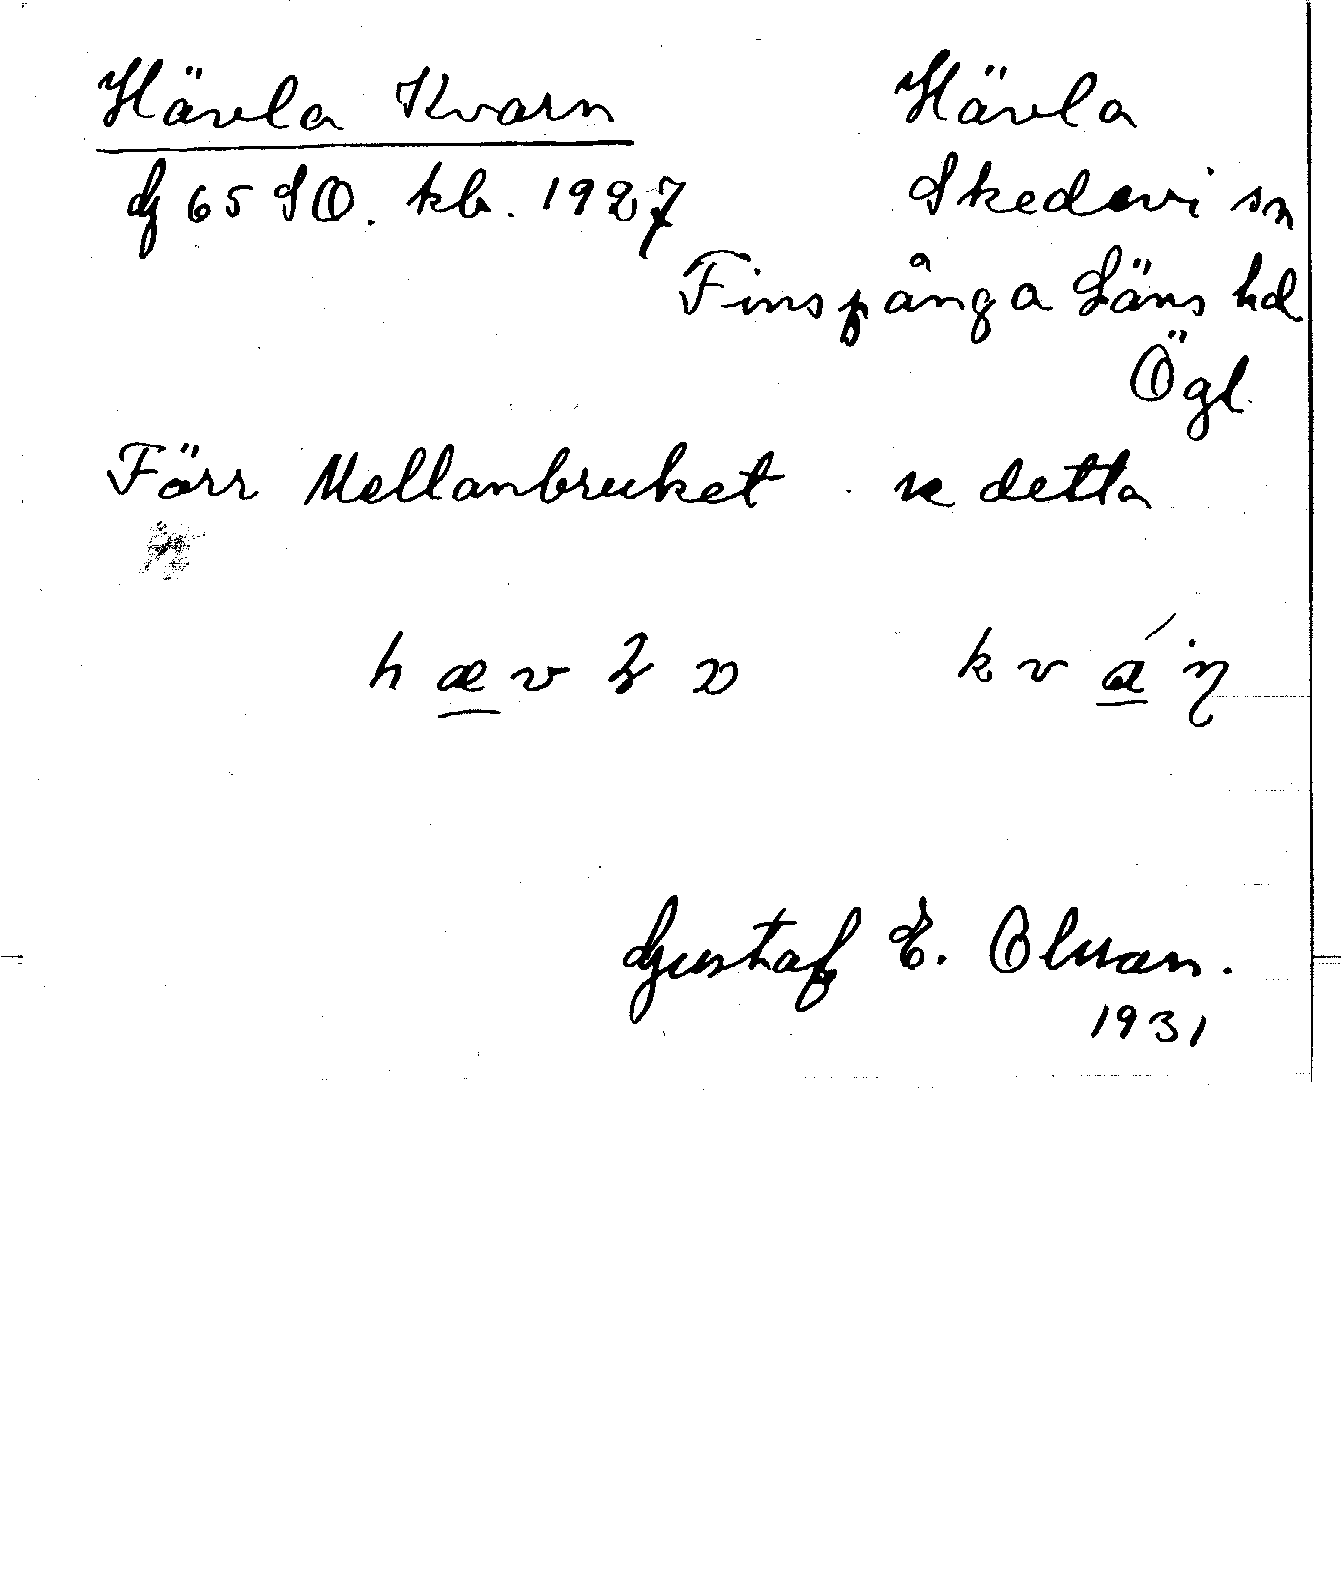 Hävla Kvarn
G 65 SO. kb. 1927
Hävla
Skedevi sn
Finspånga Läns hd
Ögl.
Förr Mellanbruket se detta
Gustaf E. Olman.
1931